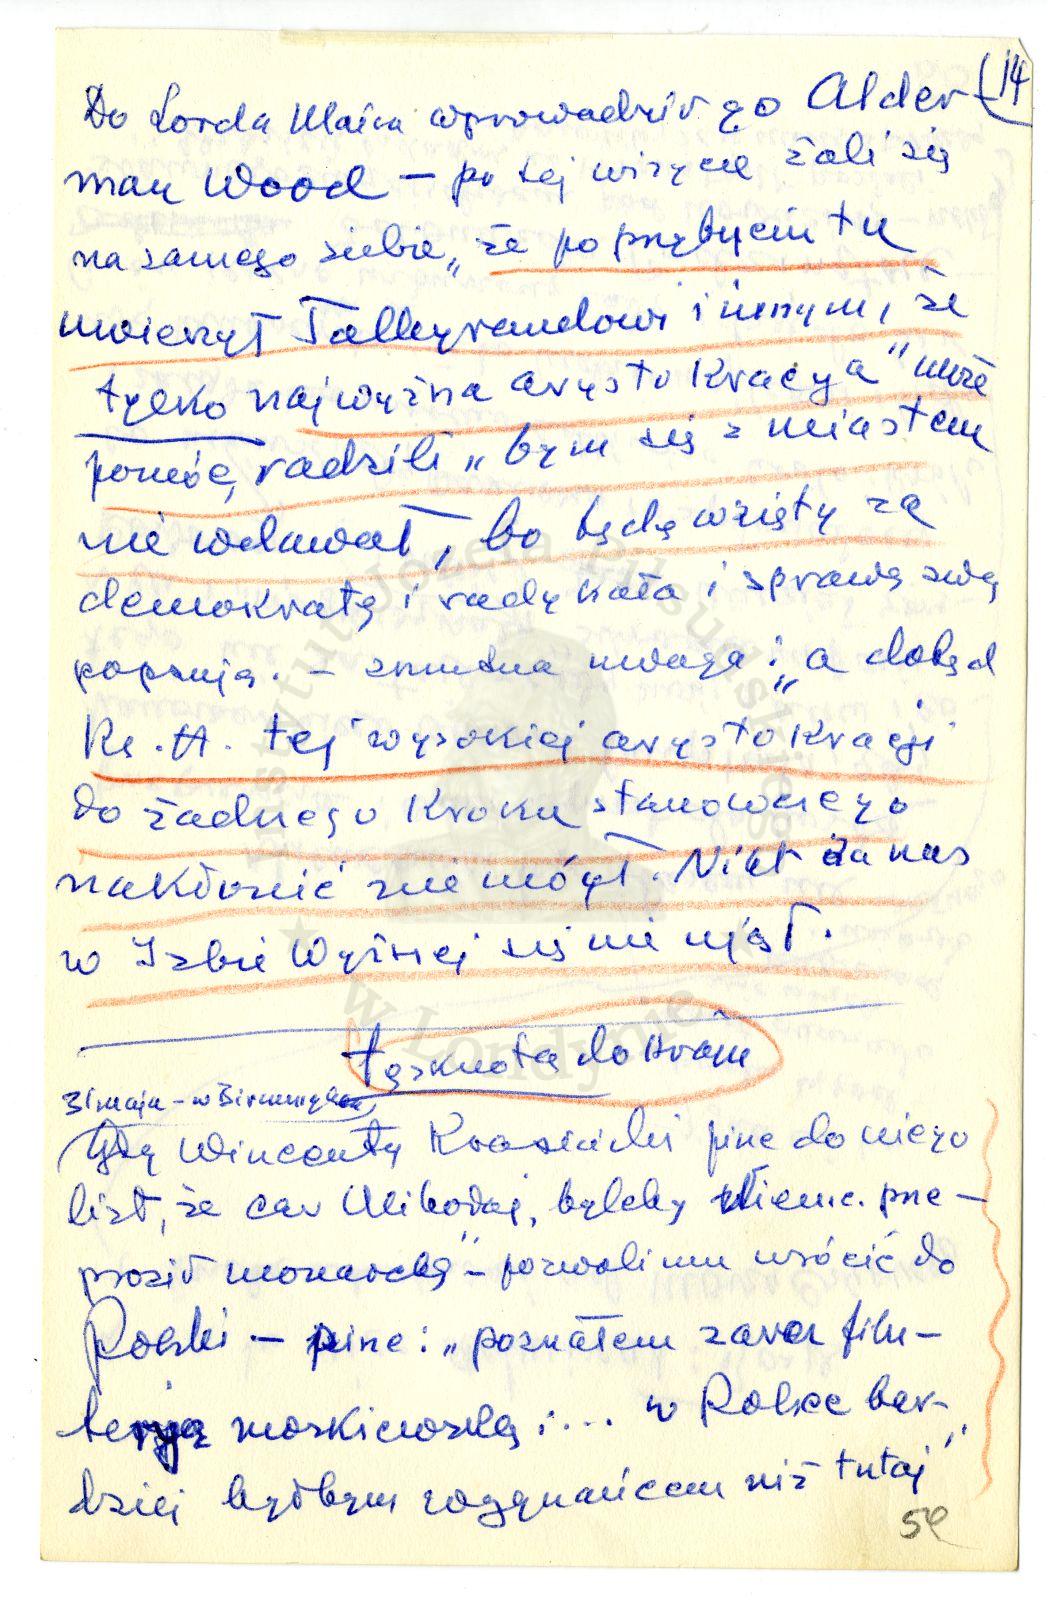 14
Do Lorda Maira wprowadził go Alder-
man Wood — po tej wizycie żali się
na samego siebie „że po przybyciu tu
uwierzył Talleyrandowi i innym, że
tylko najwyższa arystokracya" może
pomóc, radzili „bym się z miastem
nie wdawał, bo będę wzięty za
demokratę i radykała i sprawę swą
popsuję. — smutna uwaga: „a dotąd
Ks. A. tej wysokiej arystokracji
do żadnego kroku stanowczego
nakłonić nie mógł. Nikt za nas
w Izbie Wyższej się nie ujął.
tęsknota do kraju
31 maja - w Birmingham
Gdy Wincenty Krasiński pisze do niego
list, że car Mikołaj, byleby Niemc. prze-
prosił monarchę" — pozwoli mu wrócić do
Polski — pisze: „poznałem zaraz filu-
terją moskiewską: ... w Polsce bar-
dziej byłbym wygnańcem niż tutaj"
Instytut Józefa Piłsudskiego
w Londynie